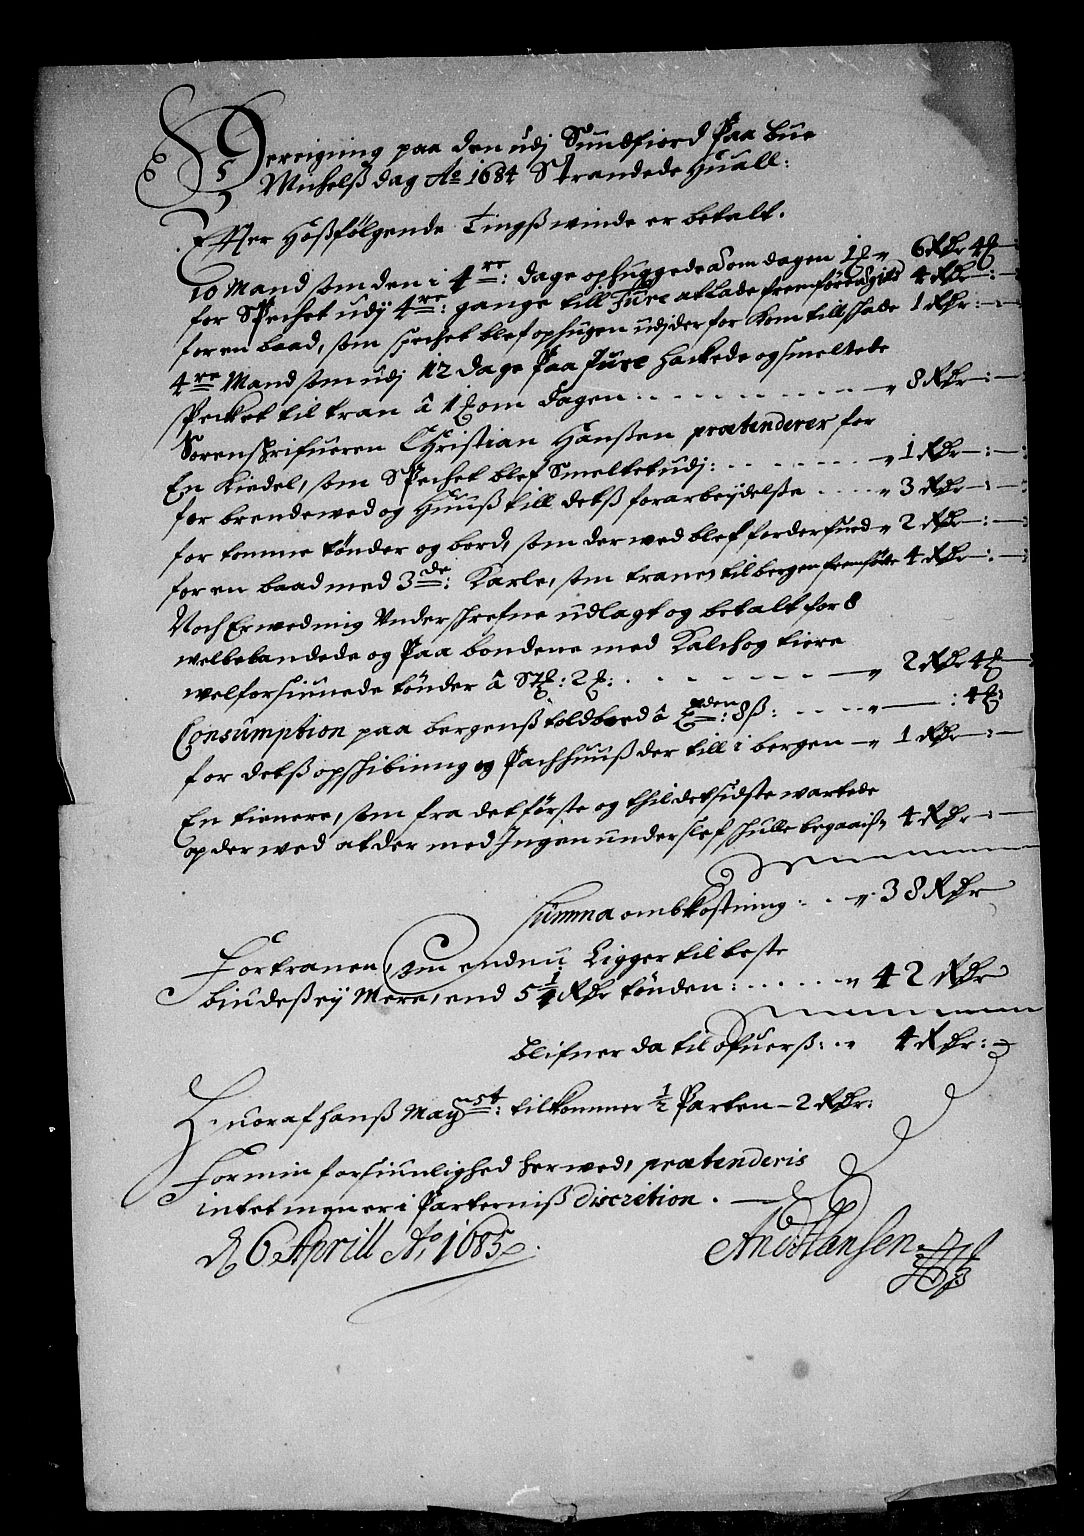 Beregning paa den udj Sundfiord Paa Bue
Michelsß dag Ao 1684 Strandede Huall:
Effter Hoßfølgende Tingßwinde er betalt.
10 Mand som den i 4re: dage ophuggede à om dagen 1 ₰ 6 Rdr 4 ₰
for Spechet udj 4re: gange till Fure at lade fremføre 4 Rdr: -
for en baad, som spechet blef ophugen udj der for kom till skade 1 Rdr: -
4re Mand som udj 12 dage Paa Fure hackede og smeltede
specket til tran â 1 ₰ om dagen: 8 Rdr: -
Sorenskrifueren Christian Hanßen prætenderer for
En Kiedel, som Spechet blef Smeltet udj: 1 Rdr: -
for brendewed og Huuß till detß forarbeydelße 3 Rdr: -
for tomme tønder og bord, som der wed blef forderfued 2 Rdr: -
for en baad med 3de: Karle, som tranen til bergen fremførte 4 Rdr: -
Noch Er wed mig Underskrefne udlagt og betalt for 8
welbebandede og Paa bondene med Kalch og tiere
welforsiunede tønder â St: 2 ₰: 2 Rdr 4 ₰
Consumption paa bergenß toldboed â Tønden: 8 ß: : 4 ₰:
for detß opskibning og Pachhuuß der till i bergen 1 Rdr: -
En tienere, som fra det første og thil det sidste wartede
op der wed at der med Ingen underslef skulle begaaiß 4 Rdr: -
summa ombkostning: 38 Rdr
For tranen, som endnu Ligger til beste
biudeß ey Mere, end 5 1/4 Rdr tønden: 42 Rdr
blifner da til ofuerß: 4 Rdr: -
Huoraf hanß Mayst: tilkommer 1/2 Parten - 2 Rdr:
For min forsiunlighed her wed, prætenderis
intet men er i Parterniß discretion.
D 6 Aprill Ao 1685.
And Hansen